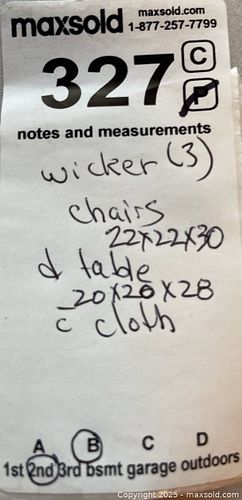 maxsold maxsold.com
1-877-257-7799
327 C
P
notes and measurements
wicker (3)
chairs
22x22x30
d table
20x20x28
c cloth
A B C D
1st 2nd 3rd bsmt garage outdoors
Copyright 2025 - maxsold.com